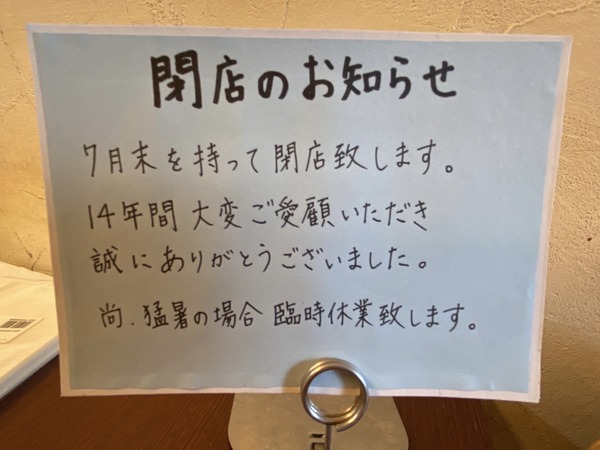 閉店のお知らせ
7月末を持って閉店致します。
14年間 大変ご愛顧いただき
誠にありがとうございました。
尚、猛暑の場合 臨時休業致します。